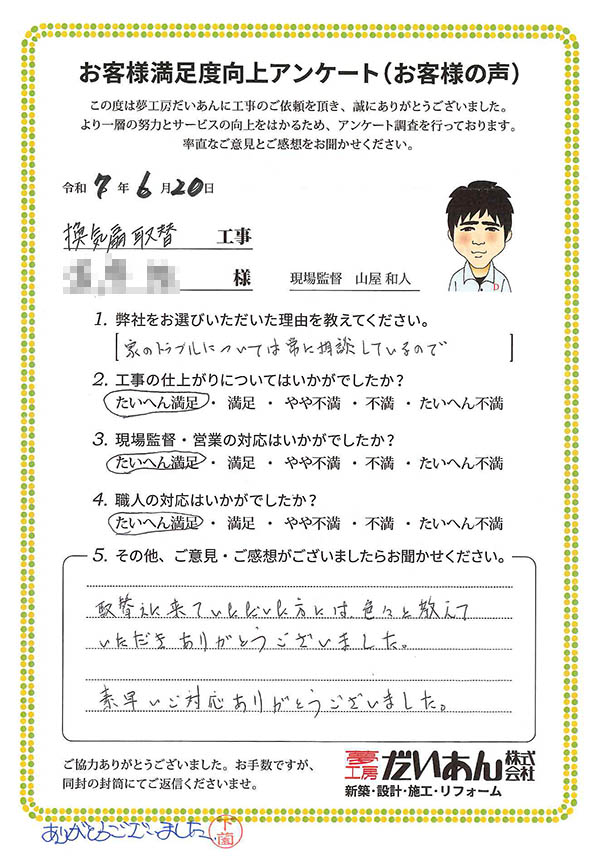 お客様満足度向上アンケート（お客様の声）
この度は夢工房だいあんに工事のご依頼を頂き、誠にありがとうございました。
より一層の努力とサービスの向上をはかるため、アンケート調査を行っております。
率直なご意見とご感想をお聞かせください。
令和 7 年 6 月 20 日
換気扇取替 工事
様 現場監督 山屋 和人
1. 弊社をお選びいただいた理由を教えてください。
家のトラブルについては常に相談しているので
2. 工事の仕上がりについてはいかがでしたか？
たいへん満足 ・ 満足 ・ やや不満 ・ 不満 ・ たいへん不満
3. 現場監督・営業の対応はいかがでしたか？
たいへん満足 ・ 満足 ・ やや不満 ・ 不満 ・ たいへん不満
4. 職人の対応はいかがでしたか？
たいへん満足 ・ 満足 ・ やや不満 ・ 不満 ・ たいへん不満
5. その他、ご意見・ご感想がございましたらお聞かせください。
取替えに来ていただいた方には、色々と教えて
いただきありがとうございました。
素早いご対応ありがとうございました。
ご協力ありがとうございました。お手数ですが、
同封の封筒にてご返信くださいませ。
夢工房 だいあん 株式会社
新築・設計・施工・リフォーム
ありがとうございました。 下薗